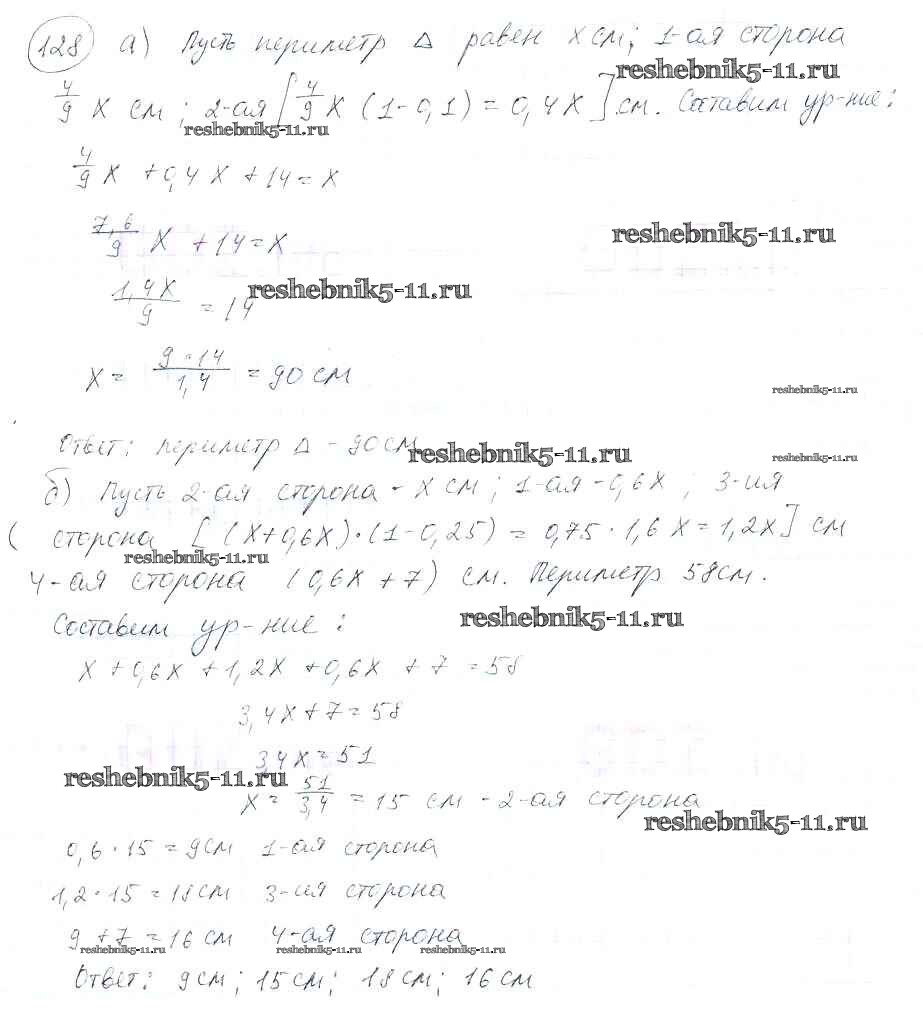 128 а) Пусть периметр △ равен x см; 1-ая сторона
reshebnik5-11.ru
4/9 x см; 2-ая [4/9 x (1-0,1) = 0,4x] см. Составим ур-ние:
reshebnik5-11.ru
4/9 x + 0,4x + 14 = x
7,6/9 x + 14 = x
reshebnik5-11.ru
1,4x/9 = 14
reshebnik5-11.ru
x = 9·14/1,4 = 90 см
reshebnik5-11.ru
Ответ: периметр △ - 90 см
reshebnik5-11.ru
reshebnik5-11.ru
б) Пусть 2-ая сторона - x см; 1-ая - 0,6x; 3-ия
( сторона [(x+0,6x)·(1-0,25) = 0,75·1,6x = 1,2x] см
reshebnik5-11.ru
4-ая сторона (0,6x + 7) см. Периметр 58 см.
Составим ур-ние:
reshebnik5-11.ru
x + 0,6x + 1,2x + 0,6x + 7 = 58
3,4x + 7 = 58
3,4x = 51
reshebnik5-11.ru
x = 51/3,4 = 15 см - 2-ая сторона
reshebnik5-11.ru
0,6·15 = 9 см 1-ая сторона
1,2·15 = 18 см 3-ия сторона
9 + 7 = 16 см 4-ая сторона
reshebnik5-11.ru reshebnik5-11.ru reshebnik5-11.ru
Ответ: 9 см; 15 см; 18 см; 16 см